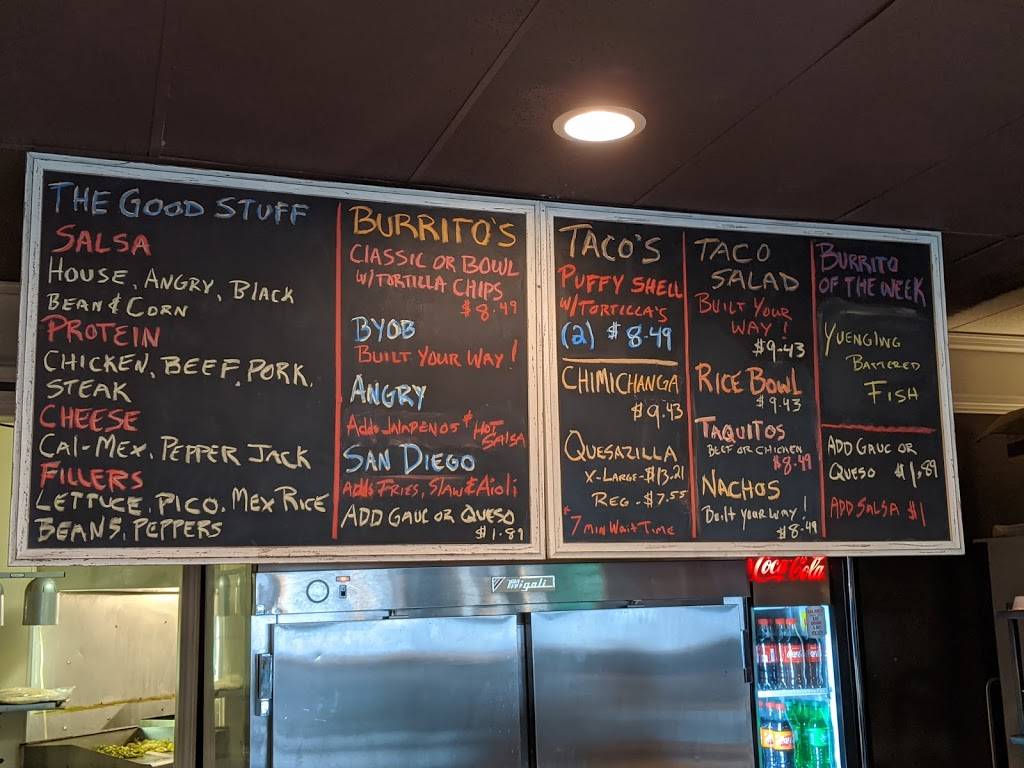 THE GOOD STUFF
SALSA
HOUSE, ANGRY, BLACK
BEAN & CORN
PROTEIN
CHICKEN, BEEF, PORK,
STEAK
CHEESE
CAL-MEX, PEPPER JACK
FILLERS
LETTUCE, PICO, MEX RICE
BEANS, PEPPERS
BURRITO'S
CLASSIC OR BOWL
W/TORTILLA CHIPS
$8.49
BYOB
BUILT YOUR WAY!
ANGRY
Adds JALAPENOS & HOT
SALSA
SAN DIEGO
Adds FRIES, SLAW & AIOLI
ADD GAUC OR QUESO
$1.89
TACO'S
PUFFY SHELL
W/TORTILLA'S
(2) $8.49
CHIMICHANGA
$9.43
QUESAZILLA
X-LARGE-$13.21
REG-$7.55
*7 MIN WAIT TIME
TACO
SALAD
BUILT YOUR
WAY!
$9.43
RICE BOWL
$9.43
TAQUITOS
BEEF OR CHICKEN
$8.49
NACHOS
BUILT YOUR WAY!
$8.49
BURRITO
OF THE WEEK
YUENGING
BATTERED
FISH
ADD GAUC OR
QUESO $1.89
ADD SALSA $1
Migali
Coca-Cola